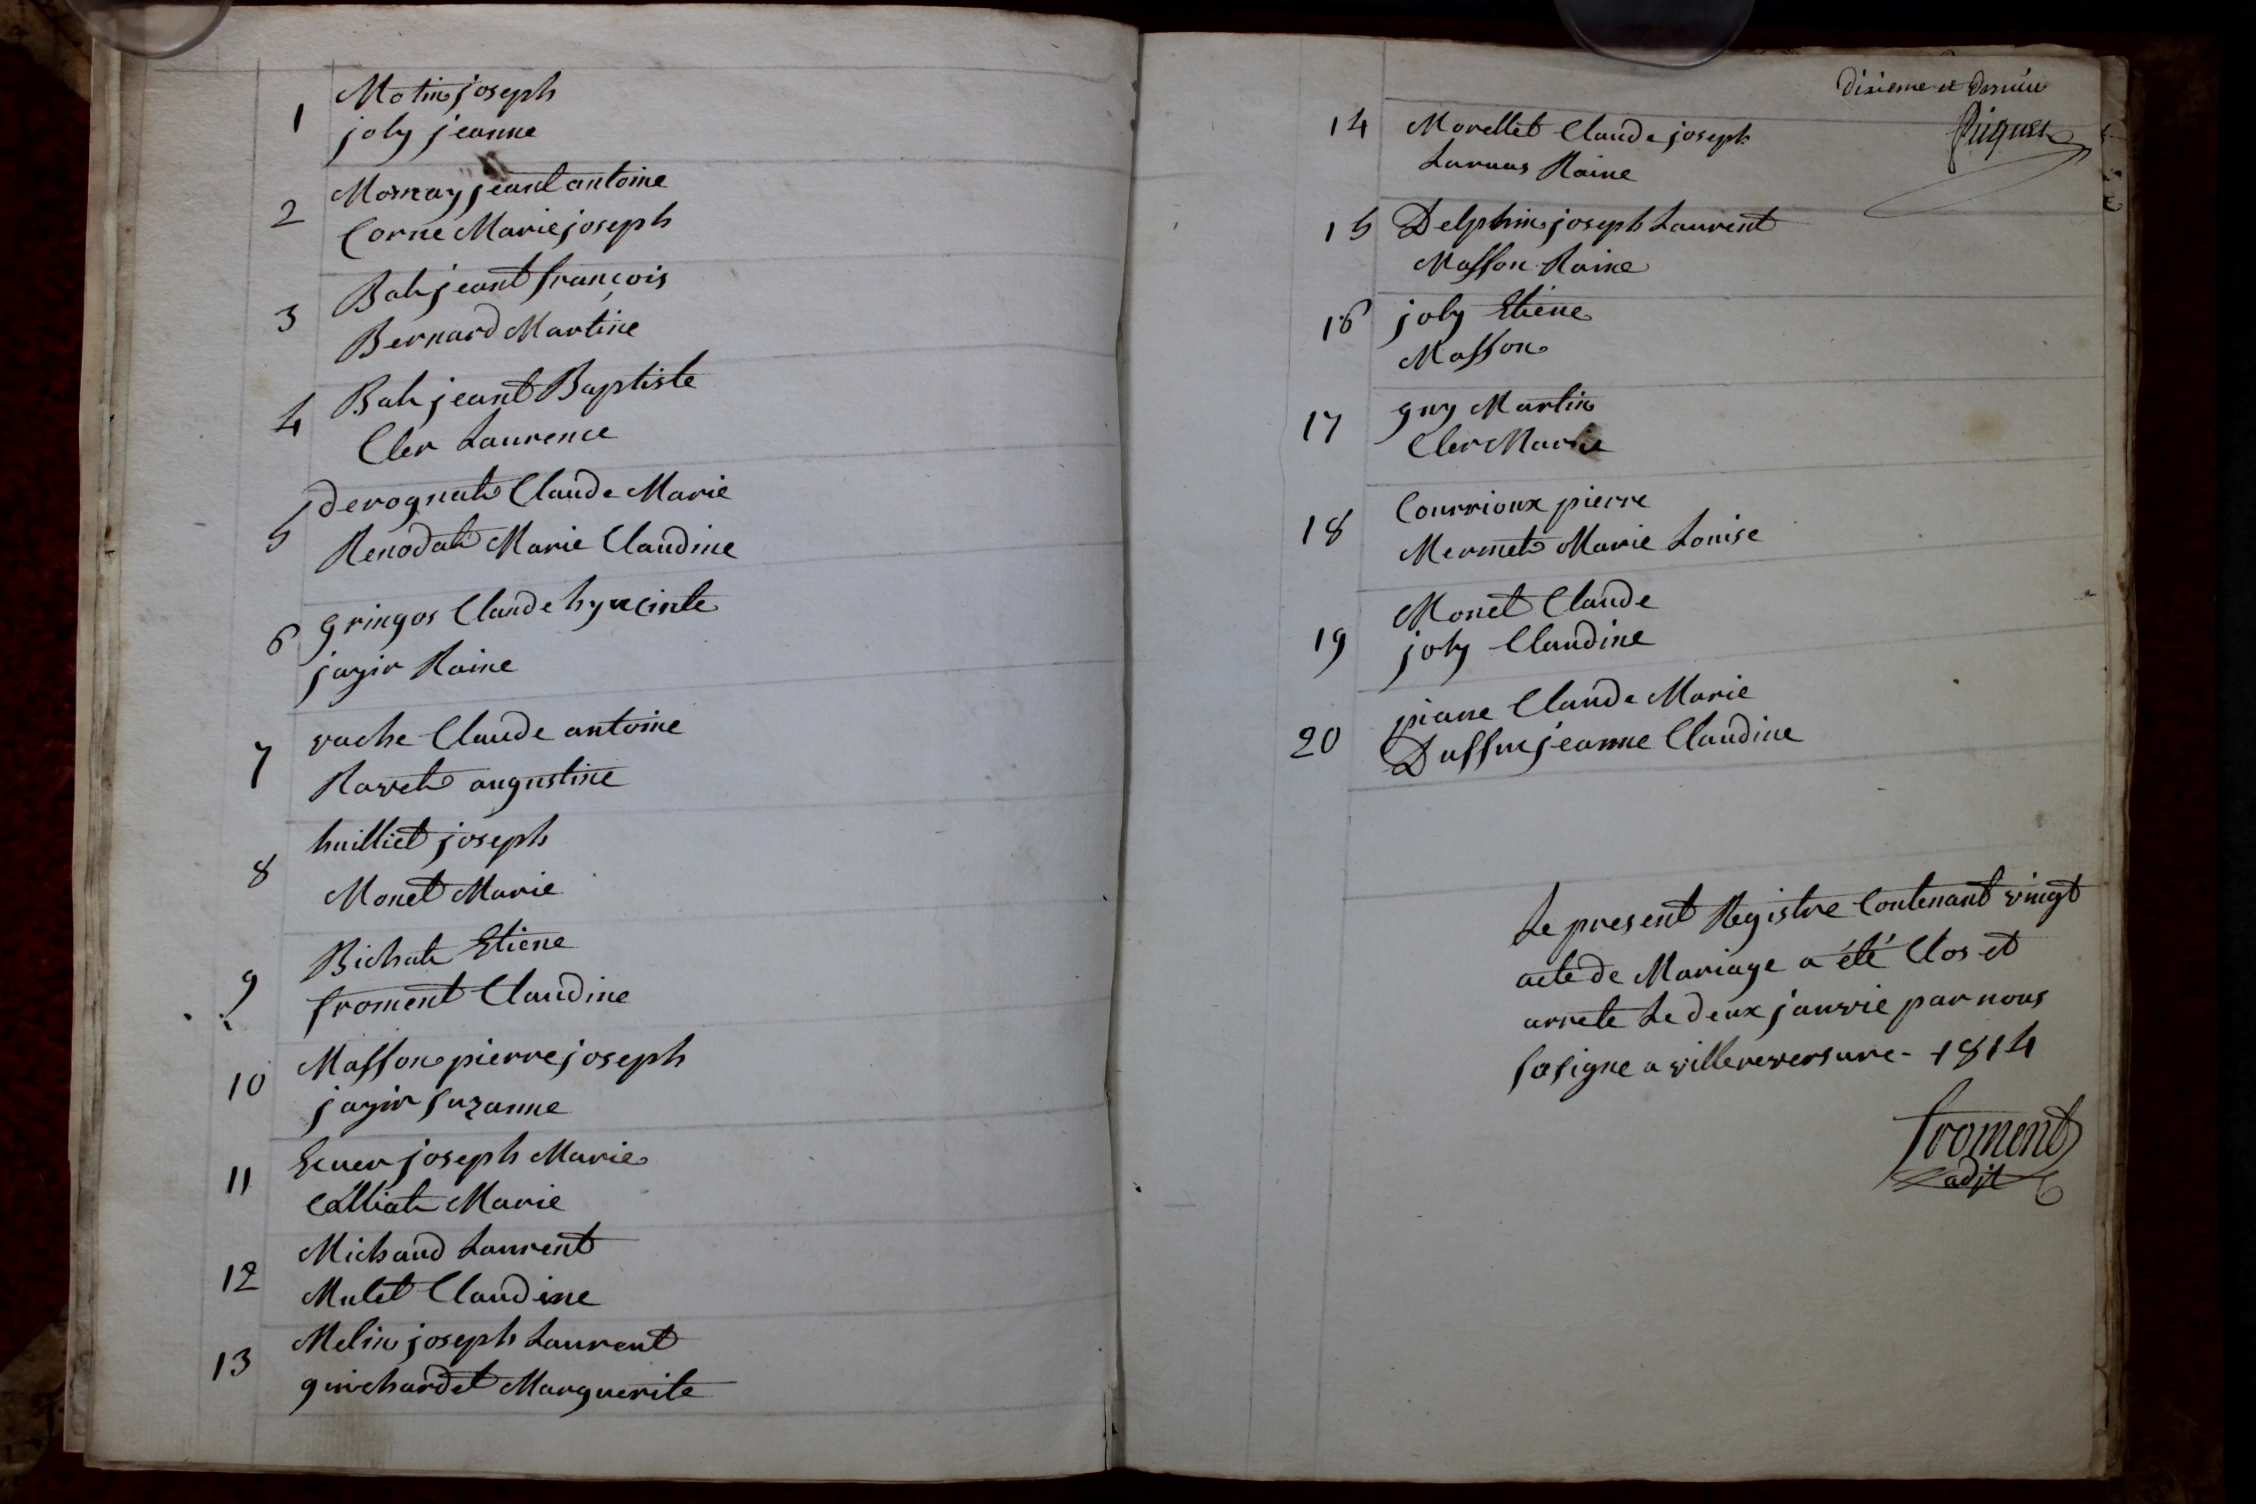 1 Motin joseph
joly jeanne
2 Mornay jeant antoine
Corne Marie joseph
3 Bah jeant françois
Bernard Martine
4 Bah jeant Baptiste
Cler Laurence
5 derognat Claude Marie
Renodat Marie Claudine
6 gringos Claude hyacinte
jayir Raine
7 vache Claude antoine
Ravet augustine
8 huilliet joseph
Monet Marie
9 Bichat Etiene
froment Claudine
10 Masson pierre joseph
jayir Suzanne
11 joseph Marie
Marie
12 Michaud Laurent
Mulet Claudine
13 Melin joseph Laurent
guichardet Marguerite
dixieme et dernier
14 Morellet Claude joseph
Raine
15 Delphin joseph Laurent
Masson Raine
16 joly Etiene
Masson
17 guy Martin
Cler Marie
18 Courrioux pierre
Mermet Marie Louise
19 Monet Claude
joly Claudine
20 piane Claude Marie
jeanne Claudine
Le present Registre Contenant vingt
acte de Mariage a été Clos et
arrete Le deux janvie par nous
sosigne a villereversure - 1814
froment
adjt